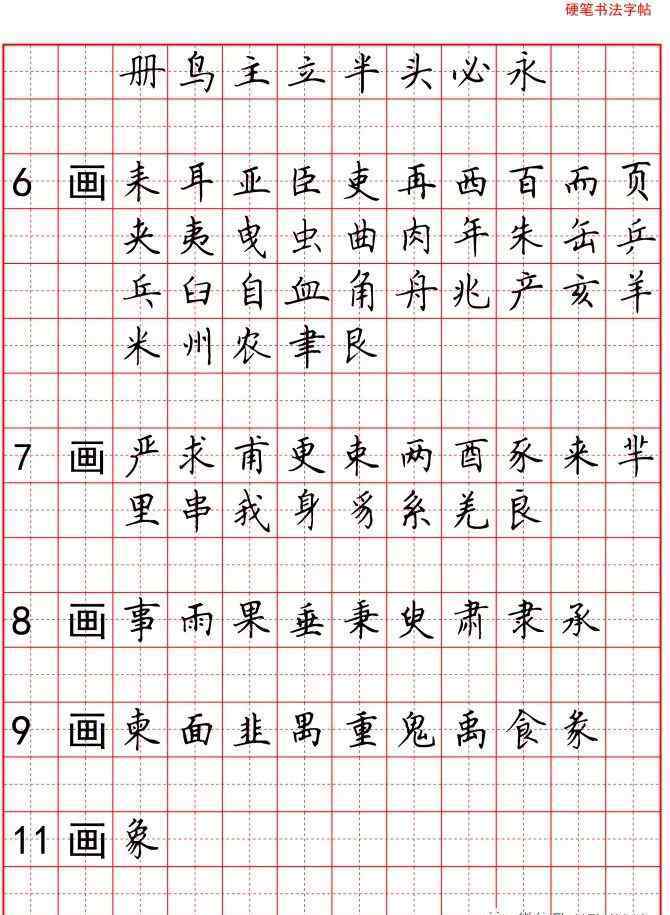 硬笔书法字帖
册鸟主立半头必永
6 画 耒耳亚臣吏再西百而页
夹夷曳虫曲肉年朱缶乒
乓臼自血角舟兆产亥羊
米州农聿艮
7 画 严求甫更束两酉豕来芈
里串我身豸系羌良
8 画 事雨果垂秉臾肃隶承
9 画 柬面韭禺重鬼禹食彖
11 画 象